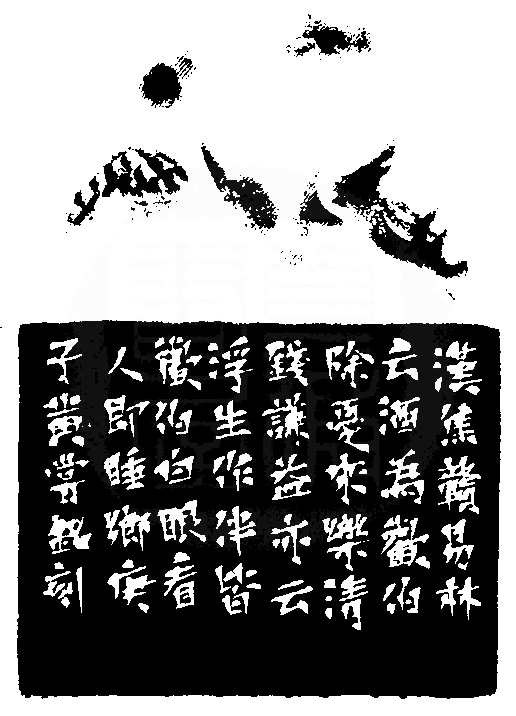 漢焦贛易林
云酒為歡伯
除憂來樂清
錢謙益亦云
浮生作伴皆
歡伯白眼看
人即睡鄉庚
子黃嘗銘刻